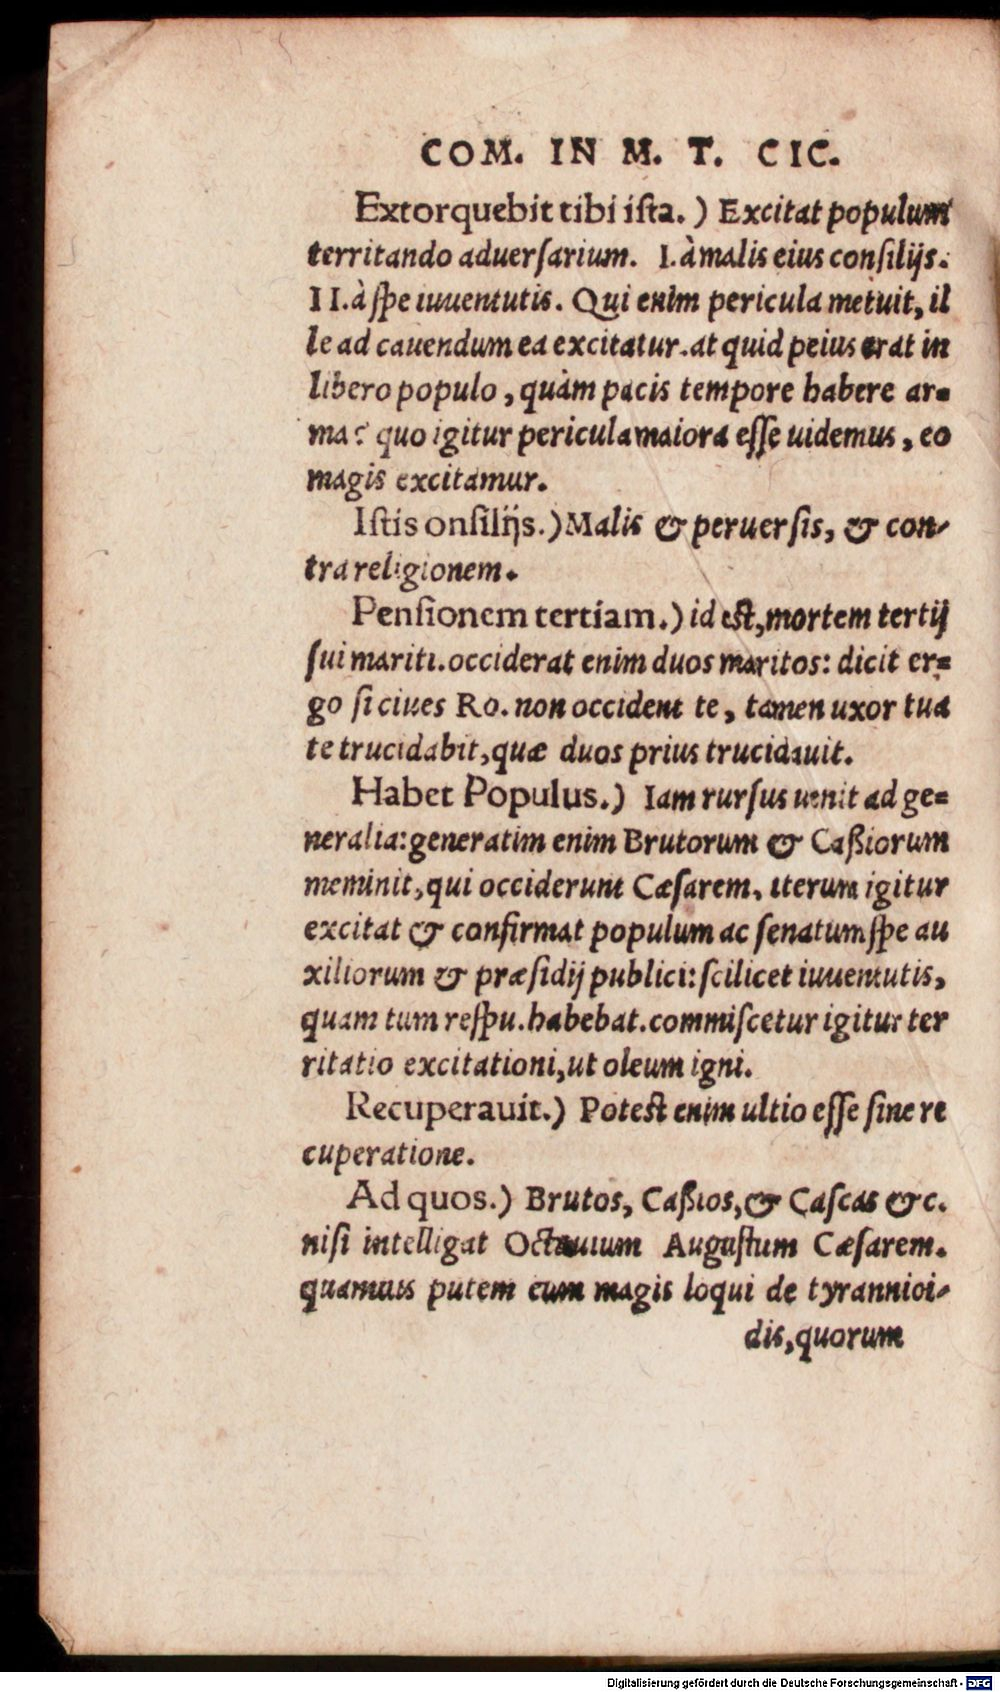 COM. IN M. T. CIC.
Extorquebit tibi iſta.) Excitat populum
territando aduerſarium. I. à malis eius conſilijs.
II. à ſpe iuuentutis. Qui enim pericula metuit, il
le ad cauendum ea excitatur. at quid peius erat in
libero populo, quàm pacis tempore habere ar=
ma? quo igitur pericula maiora eſſe uidemus, eo
magis excitamur.
Iſtis onſilijs.) Malis & peruerſis, & con-
tra religionem.
Penſionem tertiam.) id eſt, mortem tertij
ſui mariti. occiderat enim duos maritos: dicit er=
go ſi ciues Ro. non occident te, tamen uxor tua
te trucidabit, quæ duos prius trucidauit.
Habet Populus.) Iam rurſus uenit ad ge=
neralia: generatim enim Brutorum & Caßiorum
meminit, qui occiderunt Cæſarem, iterum igitur
excitat & confirmat populum ac ſenatum ſpe au
xiliorum & præſidij publici: ſcilicet iuuentutis,
quam tum reſpu. habebat. commiſcetur igitur ter
ritatio excitationi, ut oleum igni.
Recuperauit.) Poteſt enim ultio eſſe ſine re
cuperatione.
Ad quos.) Brutos, Caßios, & Caſcas &c.
niſi intelligat Octauium Auguſtum Cæſarem.
quamuis putem eum magis loqui de tyrannioi-
dis, quorum
Digitalisierung gefördert durch die Deutsche Forschungsgemeinschaft - DFG